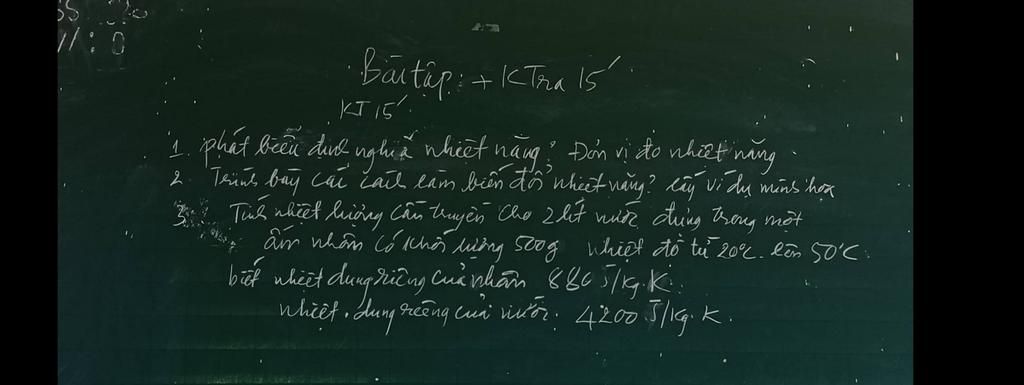 Bài tập: + KTra 15'
KT 15'
1. phát biểu định nghĩa nhiệt năng? Đơn vị đo nhiệt năng.
2. Trình bày các cách làm biến đổi nhiệt năng? lấy ví dụ minh họa
3. Tính nhiệt lượng cần truyền cho 2 lít nước đựng trong một
ấm nhôm có khối lượng 500g nhiệt độ từ 20°C lên 50°C.
biết nhiệt dung riêng của nhôm 880 J/kg.K.
nhiệt dung riêng của nước. 4200 J/kg.K.